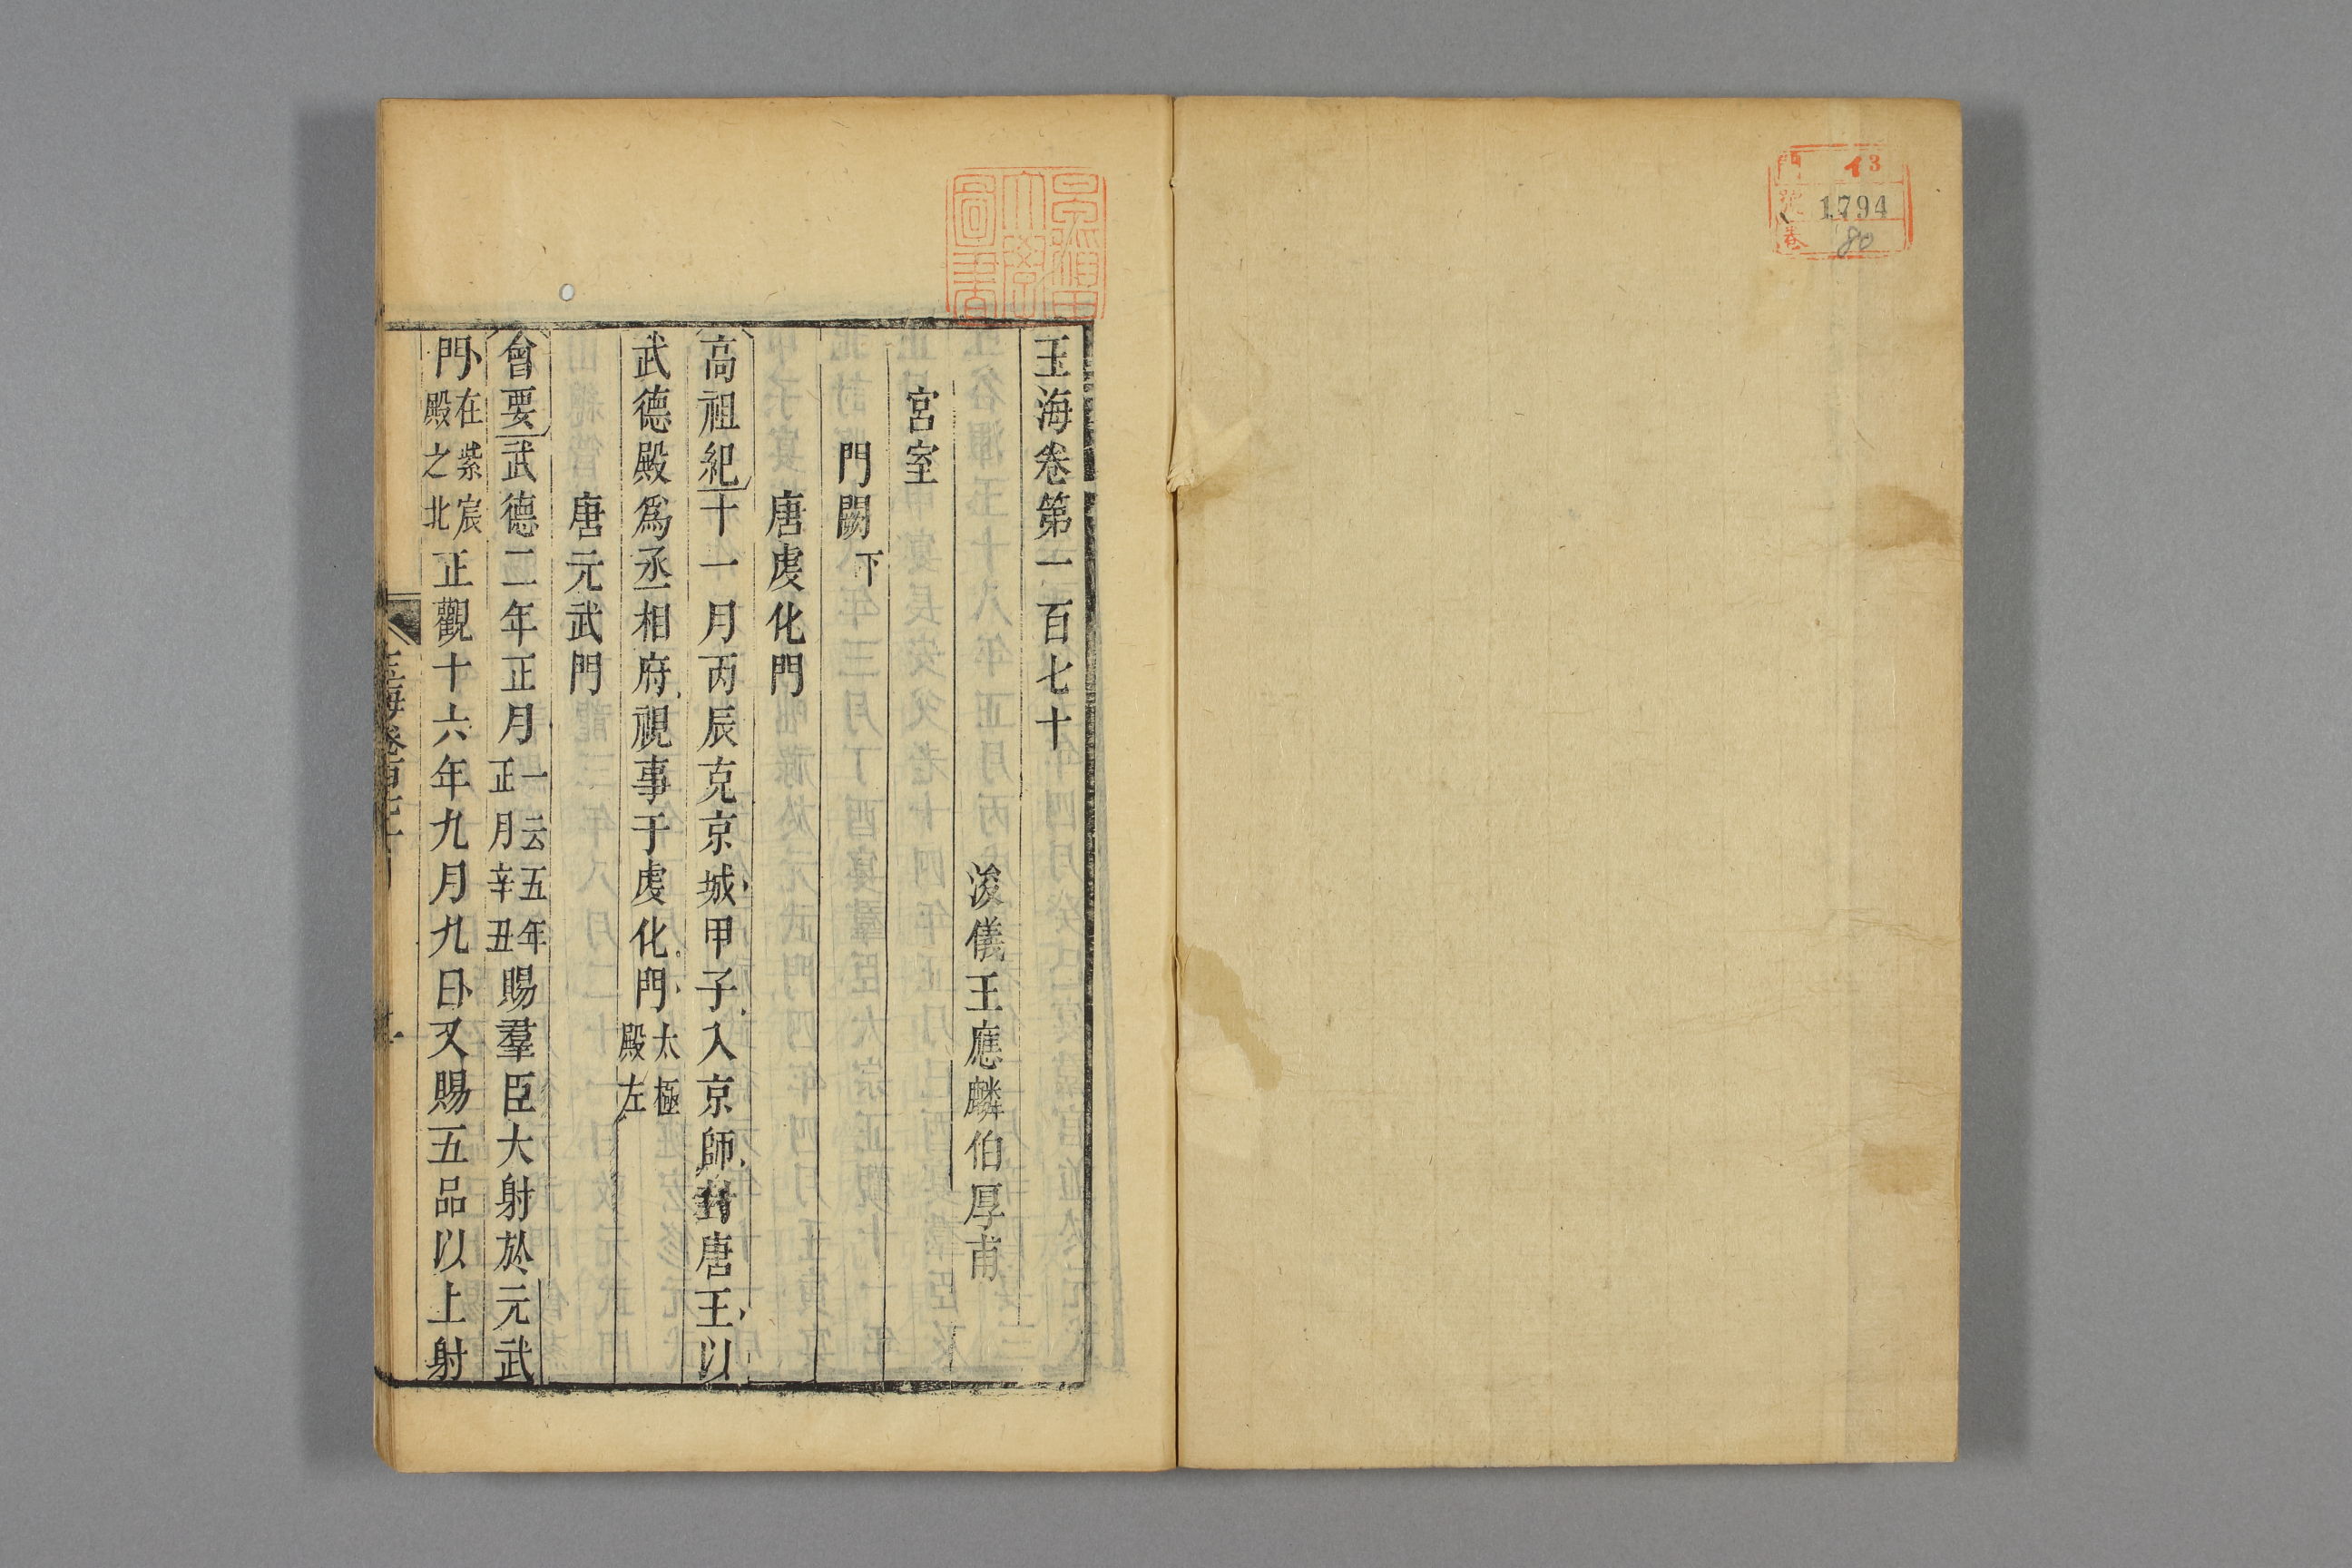 門 イ3
號 1794
卷 80
早稲田
大學
圖書
玉海卷第一百七十
浚儀王應麟伯厚甫
宮室
門闕下
唐虔化門
高祖紀十一月丙辰克京城甲子入京師封唐王以
武德殿爲丞相府視事于虔化門太極殿左
唐元武門
會要武德二年正月一云五年正月辛丑賜羣臣大射於元武
門在紫宸殿之北正觀十六年九月九日又賜五品以上射
玉海卷百七十
一